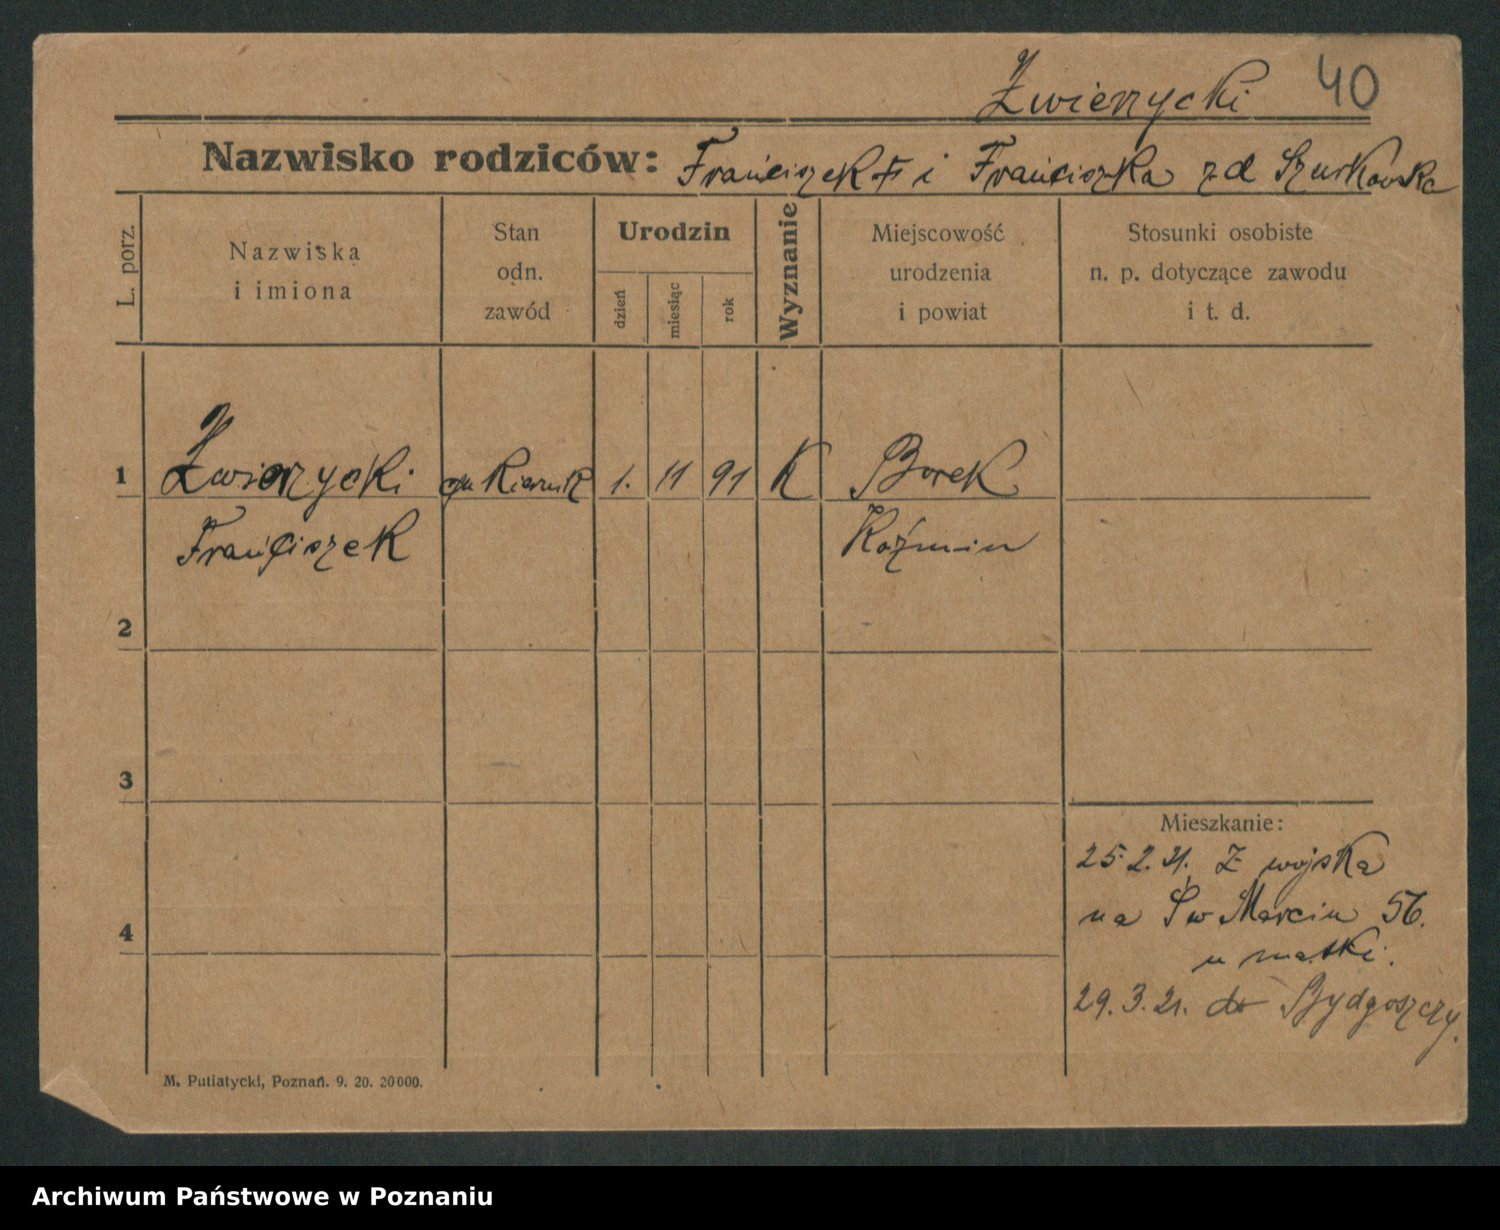 Zwierzycki 40
Nazwisko rodziców: Franciszek † i Franciszka zd Szurkowska
L. porz.
Nazwiska
i imiona
Stan
odn.
zawód
Urodzin
dzień
miesiąc
rok
Wyznanie
Miejscowość
urodzenia
i powiat
Stosunki osobiste
n. p. dotyczące zawodu
i t. d.
1 Zwierzycki 1. 11 91 K Borek
Franciszek Koźmin
2
3
Mieszkanie:
25.2.21. Z wojska
na Św Marcin 56.
4
u matki.
29.3.21. do Bydgoszczy.
M. Putiatycki, Poznań. 9. 20. 20000.
Archiwum Państwowe w Poznaniu